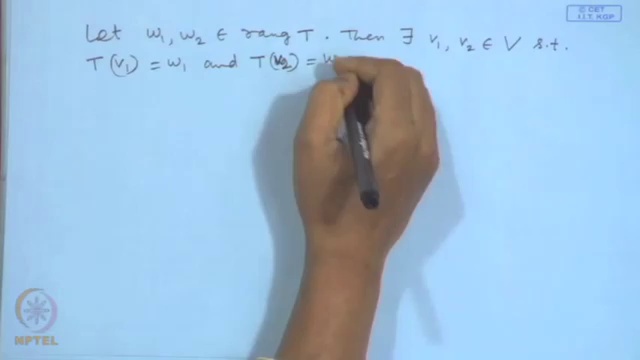 © CET
I.I.T. KGP
Let w₁, w₂ ∈ rang T. Then ∃ v₁, v₂ ∈ V s.t.
T(v₁) = w₁ and T(v₂) = w
NPTEL